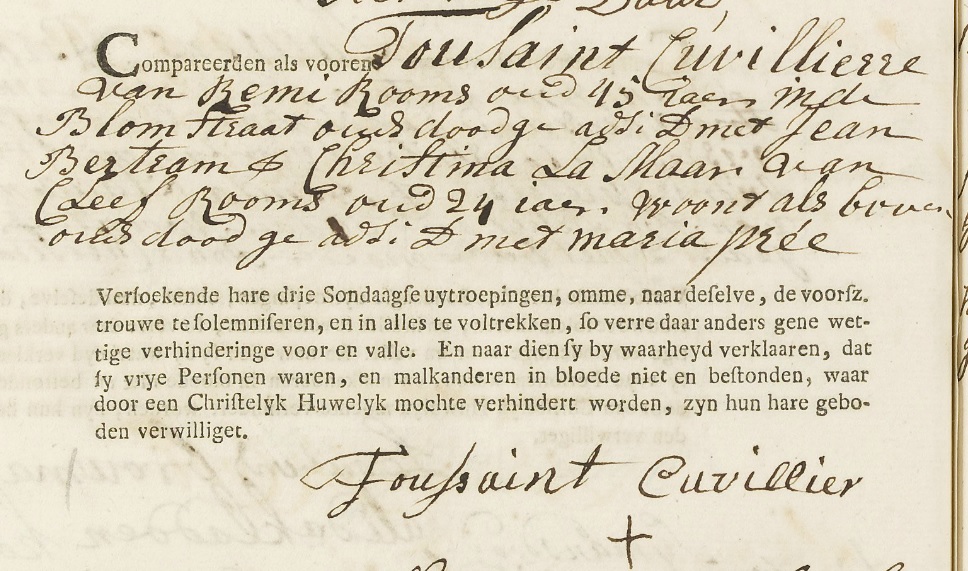 Compareerden als vooren Tousaint Cuvillierre
van Remi Rooms oud 45 Jaer in de
Blomstraat ouds dood ge adsi D met Jean
Bertram & Christina La Maar van
Cleef Rooms oud 24 iaer woont als boven
ouds dood ge adsi D met maria prée
Versoekende hare drie Sondaagse uytroepingen, omme, naar deselve, de voorsz.
trouwe te solemniseren, en in alles te voltrekken, so verre daar anders gene wet-
tige verhinderinge voor en valle. En naar dien sy by waarheyd verklaaren, dat
sy vrye Personen waren, en malkanderen in bloede niet en bestonden, waar
door een Christelyk Huwelyk mochte verhindert worden, zyn hun hare gebo-
den verwilliget.
Toussaint Cuvillier